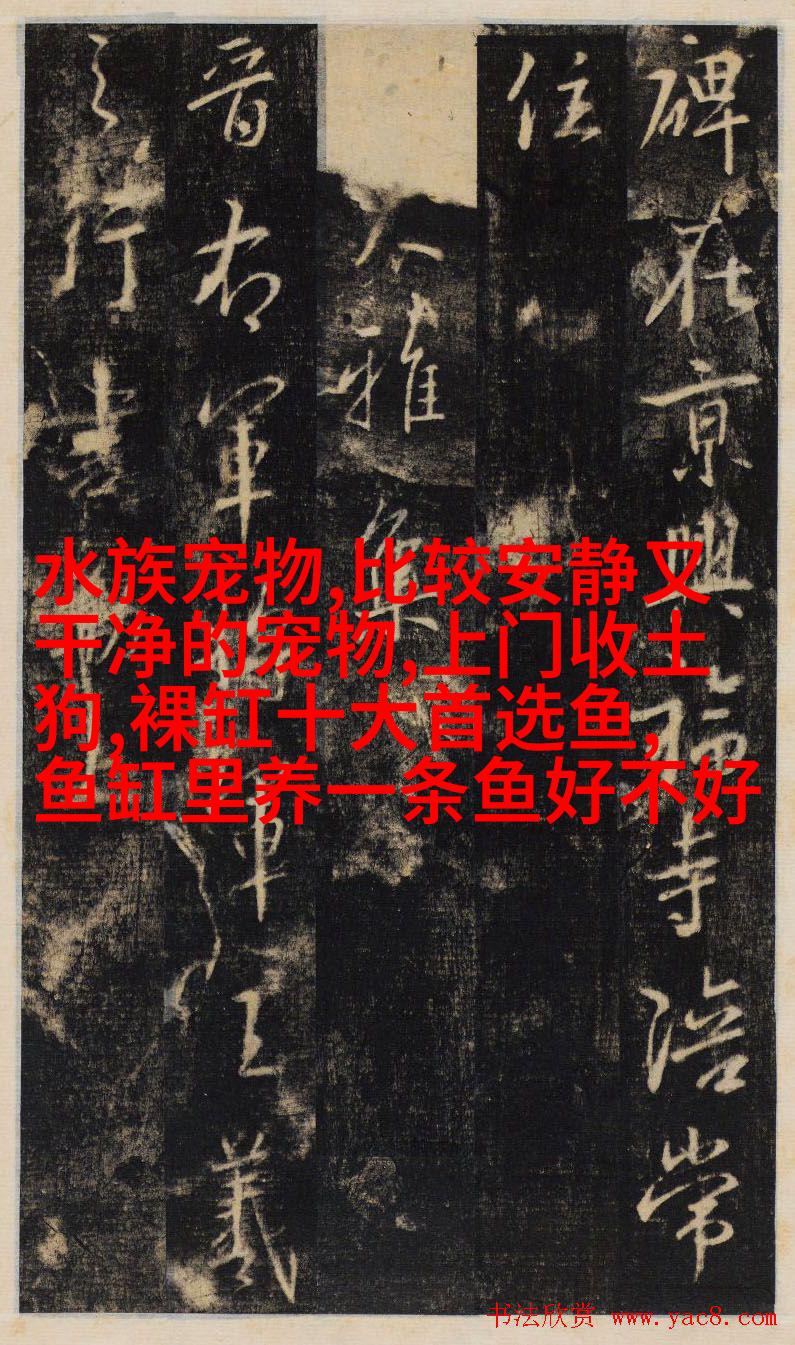 碑在京興福寺陪常
住
大雅集
晉右軍將軍王羲
之行書
水族宠物,比较安静又
干净的宠物,上门收土
狗,裸缸十大首选鱼,
鱼缸里养一条鱼好不好
书法欣赏 www.yac8.com